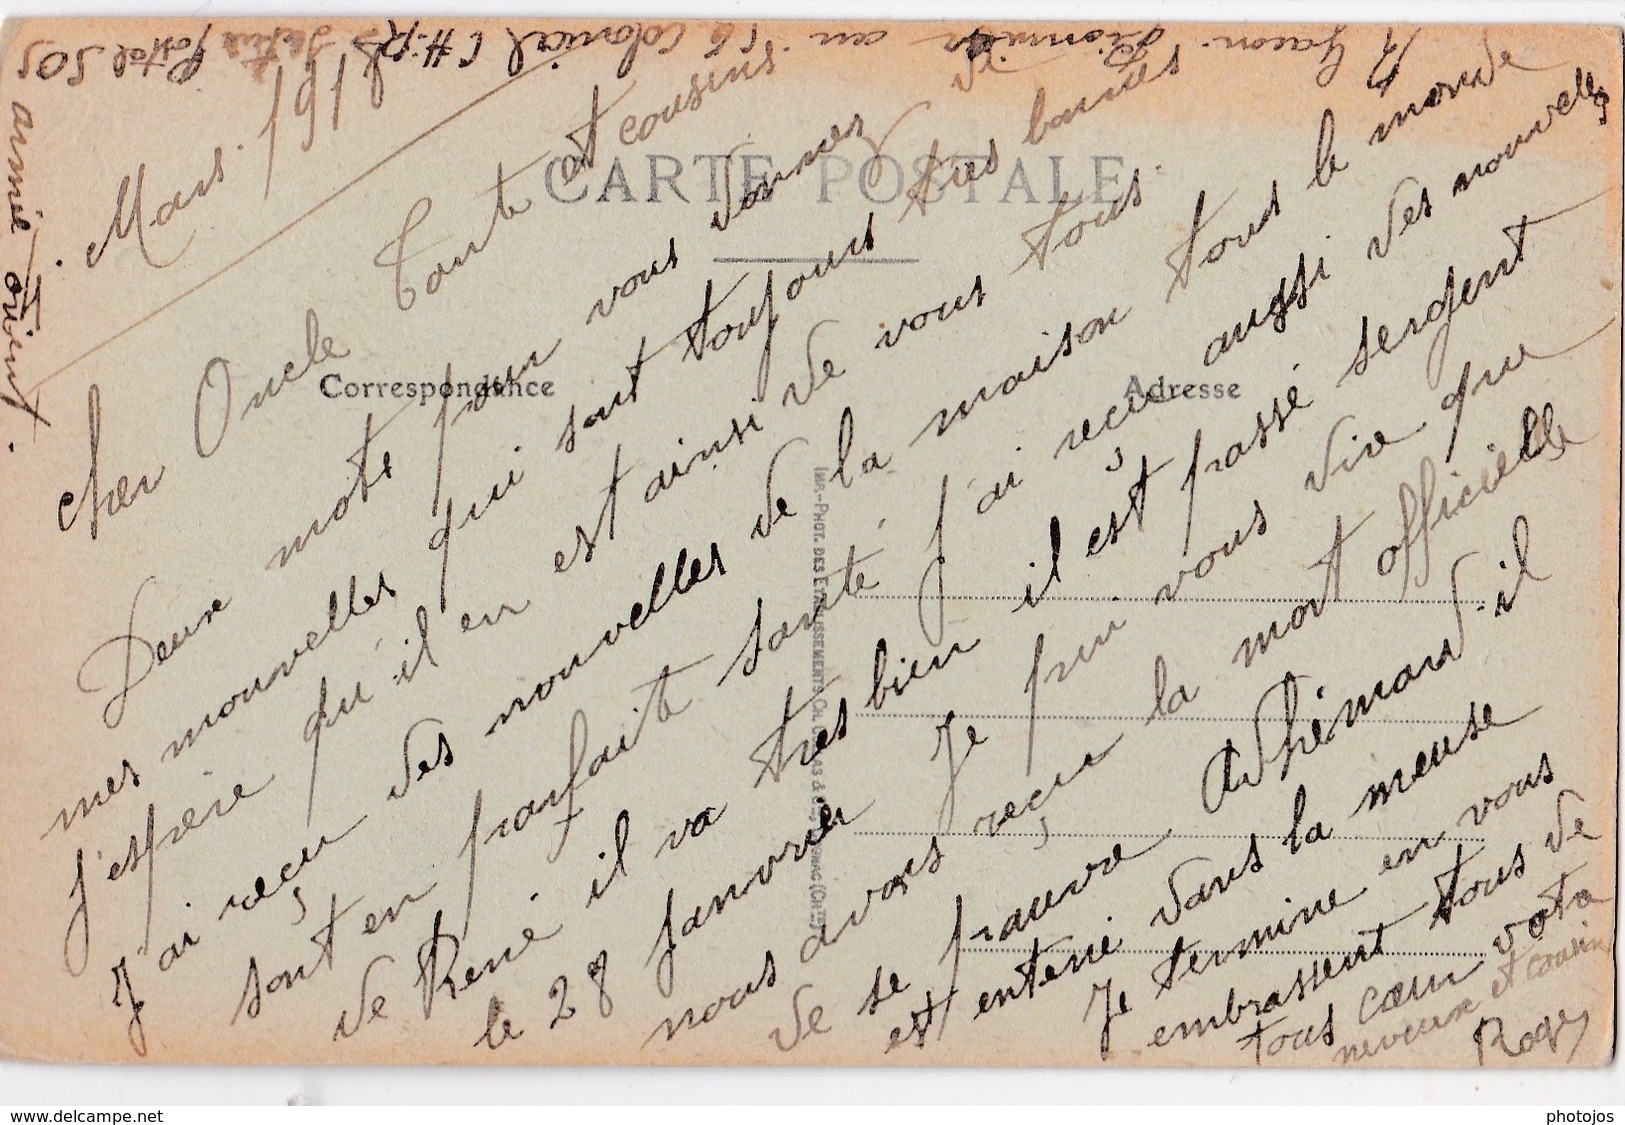 Mars 1918
Cher Oncle Tante et cousins
Deux mots pour vous donner
mes nouvelles qui sont toujours très bonnes
J'espère qu'il en est ainsi de vous tous.
J'ai reçu des nouvelles de la maison tous le monde
sont en parfaite santé, j'ai reçu aussi des nouvelles
de René il va très bien il est passé sergent
le 28 janvier Je puis vous dire que
nous avons reçu la mort officielle
de se pauvre Adhémard il
est enterié dans la meuse
Je termine en vous
embrassent tous de
tous cœur votre
neveux et cousin
Roger
pionnier au Colonial C.H.R. Secteur Postal 505
armée orient.
CARTE POSTALE
Correspondance
Adresse
IMP.-PHOT. DES ETABLISSEMENTS CH.
www.delcampe.net
photojos